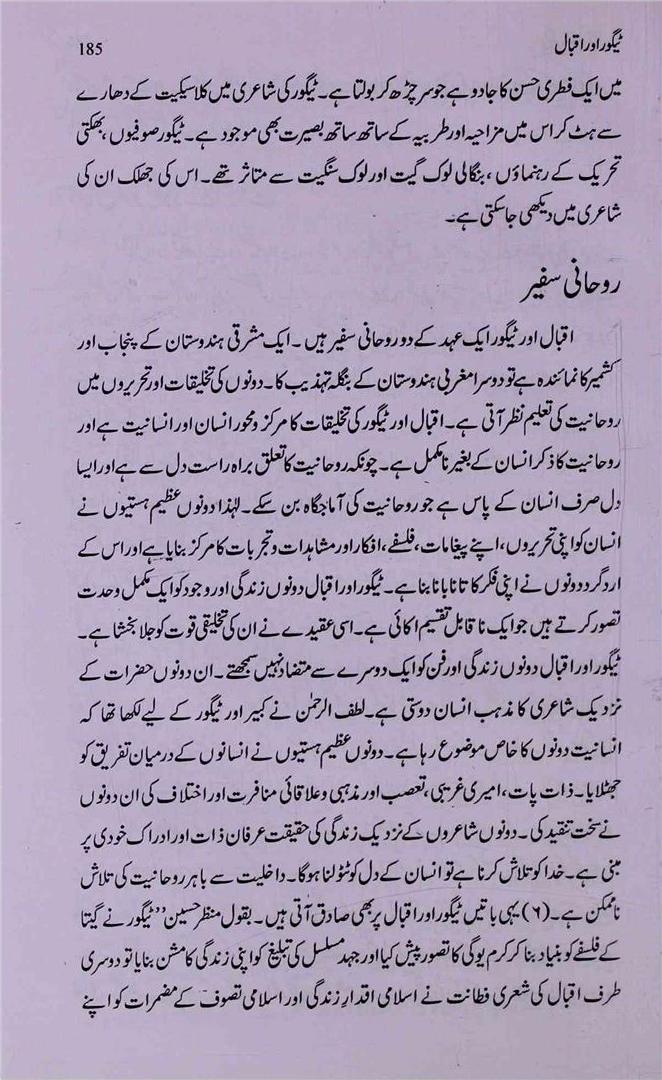 ٹیگور اور اقبال 185
میں ایک فطری حسن کا جادو ہے جو سر چڑھ کر بولتا ہے۔ ٹیگور کی شاعری میں کلاسیکیت کے دھارے
سے ہٹ کر اس میں مزاحیہ اور طربیہ کے ساتھ ساتھ بصیرت بھی موجود ہے۔ ٹیگور صوفیوں، بھکتی
تحریک کے رہنماؤں، بنگالی لوک گیت اور لوک سنگیت سے متاثر تھے۔ اس کی جھلک ان کی
شاعری میں دیکھی جاسکتی ہے۔
روحانی سفیر
اقبال اور ٹیگور ایک عہد کے دو روحانی سفیر ہیں۔ ایک مشرقی ہندوستان کے پنجاب اور
کشمیر کا نمائندہ ہے تو دوسرا مغربی ہندوستان کے بنگلہ تہذیب کا۔ دونوں کی تخلیقات اور تحریروں میں
روحانیت کی تعلیم نظر آتی ہے۔ اقبال اور ٹیگور کی تخلیقات کا مرکز و محور انسان اور انسانیت ہے اور
روحانیت کا ذکر انسان کے بغیر نامکمل ہے۔ چونکہ روحانیت کا تعلق براہ راست دل سے ہے اور ایسا
دل صرف انسان کے پاس ہے جو روحانیت کی آماجگاہ بن سکے۔ لہٰذا دونوں عظیم ہستیوں نے
انسان کو اپنی تحریروں، اپنے پیغامات، فلسفے، افکار اور مشاہدات و تجربات کا مرکز بنایا ہے اور اس کے
اردگرد دونوں نے اپنی فکر کا تانا بانا بنا ہے۔ ٹیگور اور اقبال دونوں زندگی اور وجود کو ایک مکمل وحدت
تصور کرتے ہیں جو ایک ناقابل تقسیم اکائی ہے۔ اسی عقیدے نے ان کی تخلیقی قوت کو جلا بخشا ہے۔
ٹیگور اور اقبال دونوں زندگی اور فن کو ایک دوسرے سے متضاد نہیں سمجھتے۔ ان دونوں حضرات کے
نزدیک شاعری کا مذہب انسان دوستی ہے۔ لطف الرحمٰن نے کبیر اور ٹیگور کے لیے لکھا تھا کہ
انسانیت دونوں کا خاص موضوع رہا ہے۔ دونوں عظیم ہستیوں نے انسانوں کے درمیان تفریق کو
جھٹلایا۔ ذات پات، امیری غریبی، تعصب اور مذہبی و علاقائی منافرت اور اختلاف کی ان دونوں
نے سخت تنقید کی۔ دونوں شاعروں کے نزدیک زندگی کی حقیقت عرفان ذات اور ادراک خودی پر
مبنی ہے۔ خدا کو تلاش کرنا ہے تو انسان کے دل کو ٹٹولنا ہوگا۔ داخلیت سے باہر روحانیت کی تلاش
ناممکن ہے۔ (۶) یہی باتیں ٹیگور اور اقبال پر بھی صادق آتی ہیں۔ بقول منظر حسین ”ٹیگور نے گیتا
کے فلسفے کو بنیاد بنا کر کرم یوگی کا تصور پیش کیا اور جہد مسلسل کی تبلیغ کو اپنی زندگی کا مشن بنایا تو دوسری
طرف اقبال کی شعری فطانت نے اسلامی اقدارِ زندگی اور اسلامی تصوف کے مضمرات کو اپنے